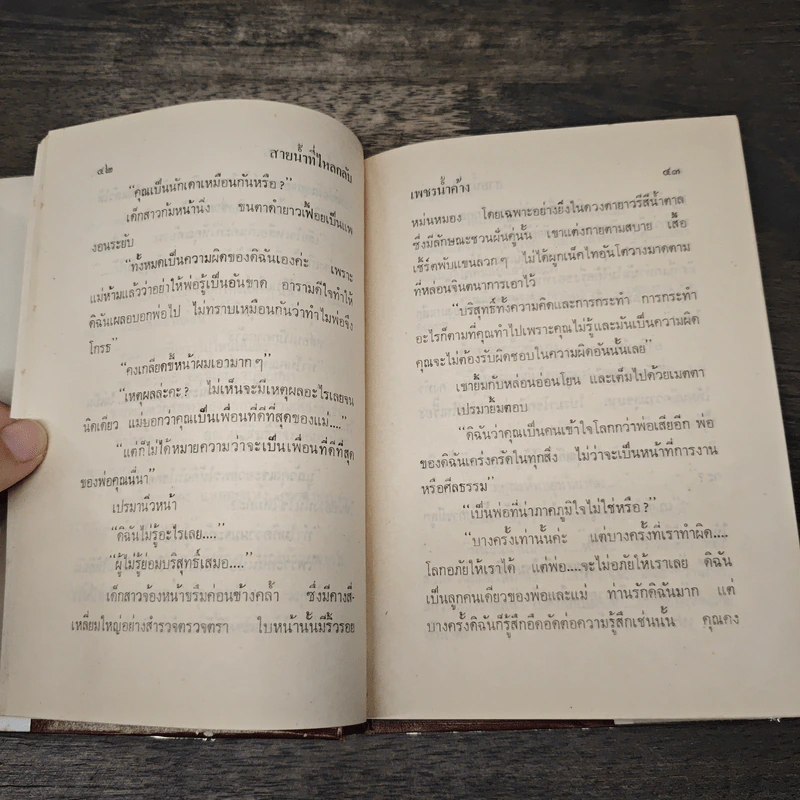 ๔๒
สายน้ำที่ไหลกลับ
“คุณเป็นนักเดาเหมือนกันหรือ ?”
เด็กสาวก้มหน้านิ่ง ขนตาดำยาวเฟื้อยเป็นแพ
งอนระยับ
“ทั้งหมดเป็นความผิดของดิฉันเองค่ะ เพราะ
แม่ห้ามแล้วว่าอย่าให้พ่อรู้เป็นอันขาด อารามดีใจทำให้
ดิฉันเผลอบอกพ่อไป ไม่ทราบเหมือนกันว่าทำไมพ่อจึง
โกรธ”
“คงเกลียดขี้หน้าผมเอามาก ๆ”
“เหตุผลล่ะคะ ? ไม่เห็นจะมีเหตุผลอะไรเลยจน
นิดเดียว แม่บอกว่าคุณเป็นเพื่อนที่ดีที่สุดของแม่....”
“แต่ก็ไม่ได้หมายความว่าจะเป็นเพื่อนที่ดีที่สุด
ของพ่อคุณนี่นา”
เปรมานิ่วหน้า
“ดิฉันไม่รู้อะไรเลย....”
“ผู้ไม่รู้ย่อมบริสุทธิ์เสมอ....”
เด็กสาวจ้องหน้าขรึมค่อนข้างคล้ำ ซึ่งมีคางสี่-
เหลี่ยมใหญ่อย่างสำรวจตรวจตรา ใบหน้านั้นมีริ้วรอย
เพชรน้ำค้าง
๔๓
หม่นหมอง โดยเฉพาะอย่างยิ่งในดวงตายาวรีสีน้ำตาล
ซึ่งมีลักษณะชวนฝันคู่นั้น เขาแต่งกายตามสบาย เสื้อ
เชิ้ตพับแขนลวก ๆ ไม่ได้ผูกเน็คไทอันโตวางมาดตาม
ที่หล่อนจินตนาการเอาไว้
“บริสุทธิ์ทั้งความคิดและการกระทำ การกระทำ
อะไรก็ตามที่คุณทำไปเพราะคุณไม่รู้และมันเป็นความผิด
คุณจะไม่ต้องรับผิดชอบในความผิดอันนั้นเลย”
เขายิ้มกับหล่อนอ่อนโยน และเต็มไปด้วยเมตตา
เปรมายิ้มตอบ
“ดิฉันว่าคุณเป็นคนเข้าใจโลกกว่าพ่อเสียอีก พ่อ
ของดิฉันเคร่งครัดในทุกสิ่ง ไม่ว่าจะเป็นหน้าที่การงาน
หรือศีลธรรม”
“เป็นพ่อที่น่าภาคภูมิใจไม่ใช่หรือ ?”
“บางครั้งเท่านั้นค่ะ แต่บางครั้งที่เราทำผิด....
โลกอภัยให้เราได้ แต่พ่อ....จะไม่อภัยให้เราเลย ดิฉัน
เป็นลูกคนเดียวของพ่อและแม่ ท่านรักดิฉันมาก แต่
บางครั้งดิฉันก็รู้สึกอึดอัดต่อความรู้สึกเช่นนั้น คุณคง